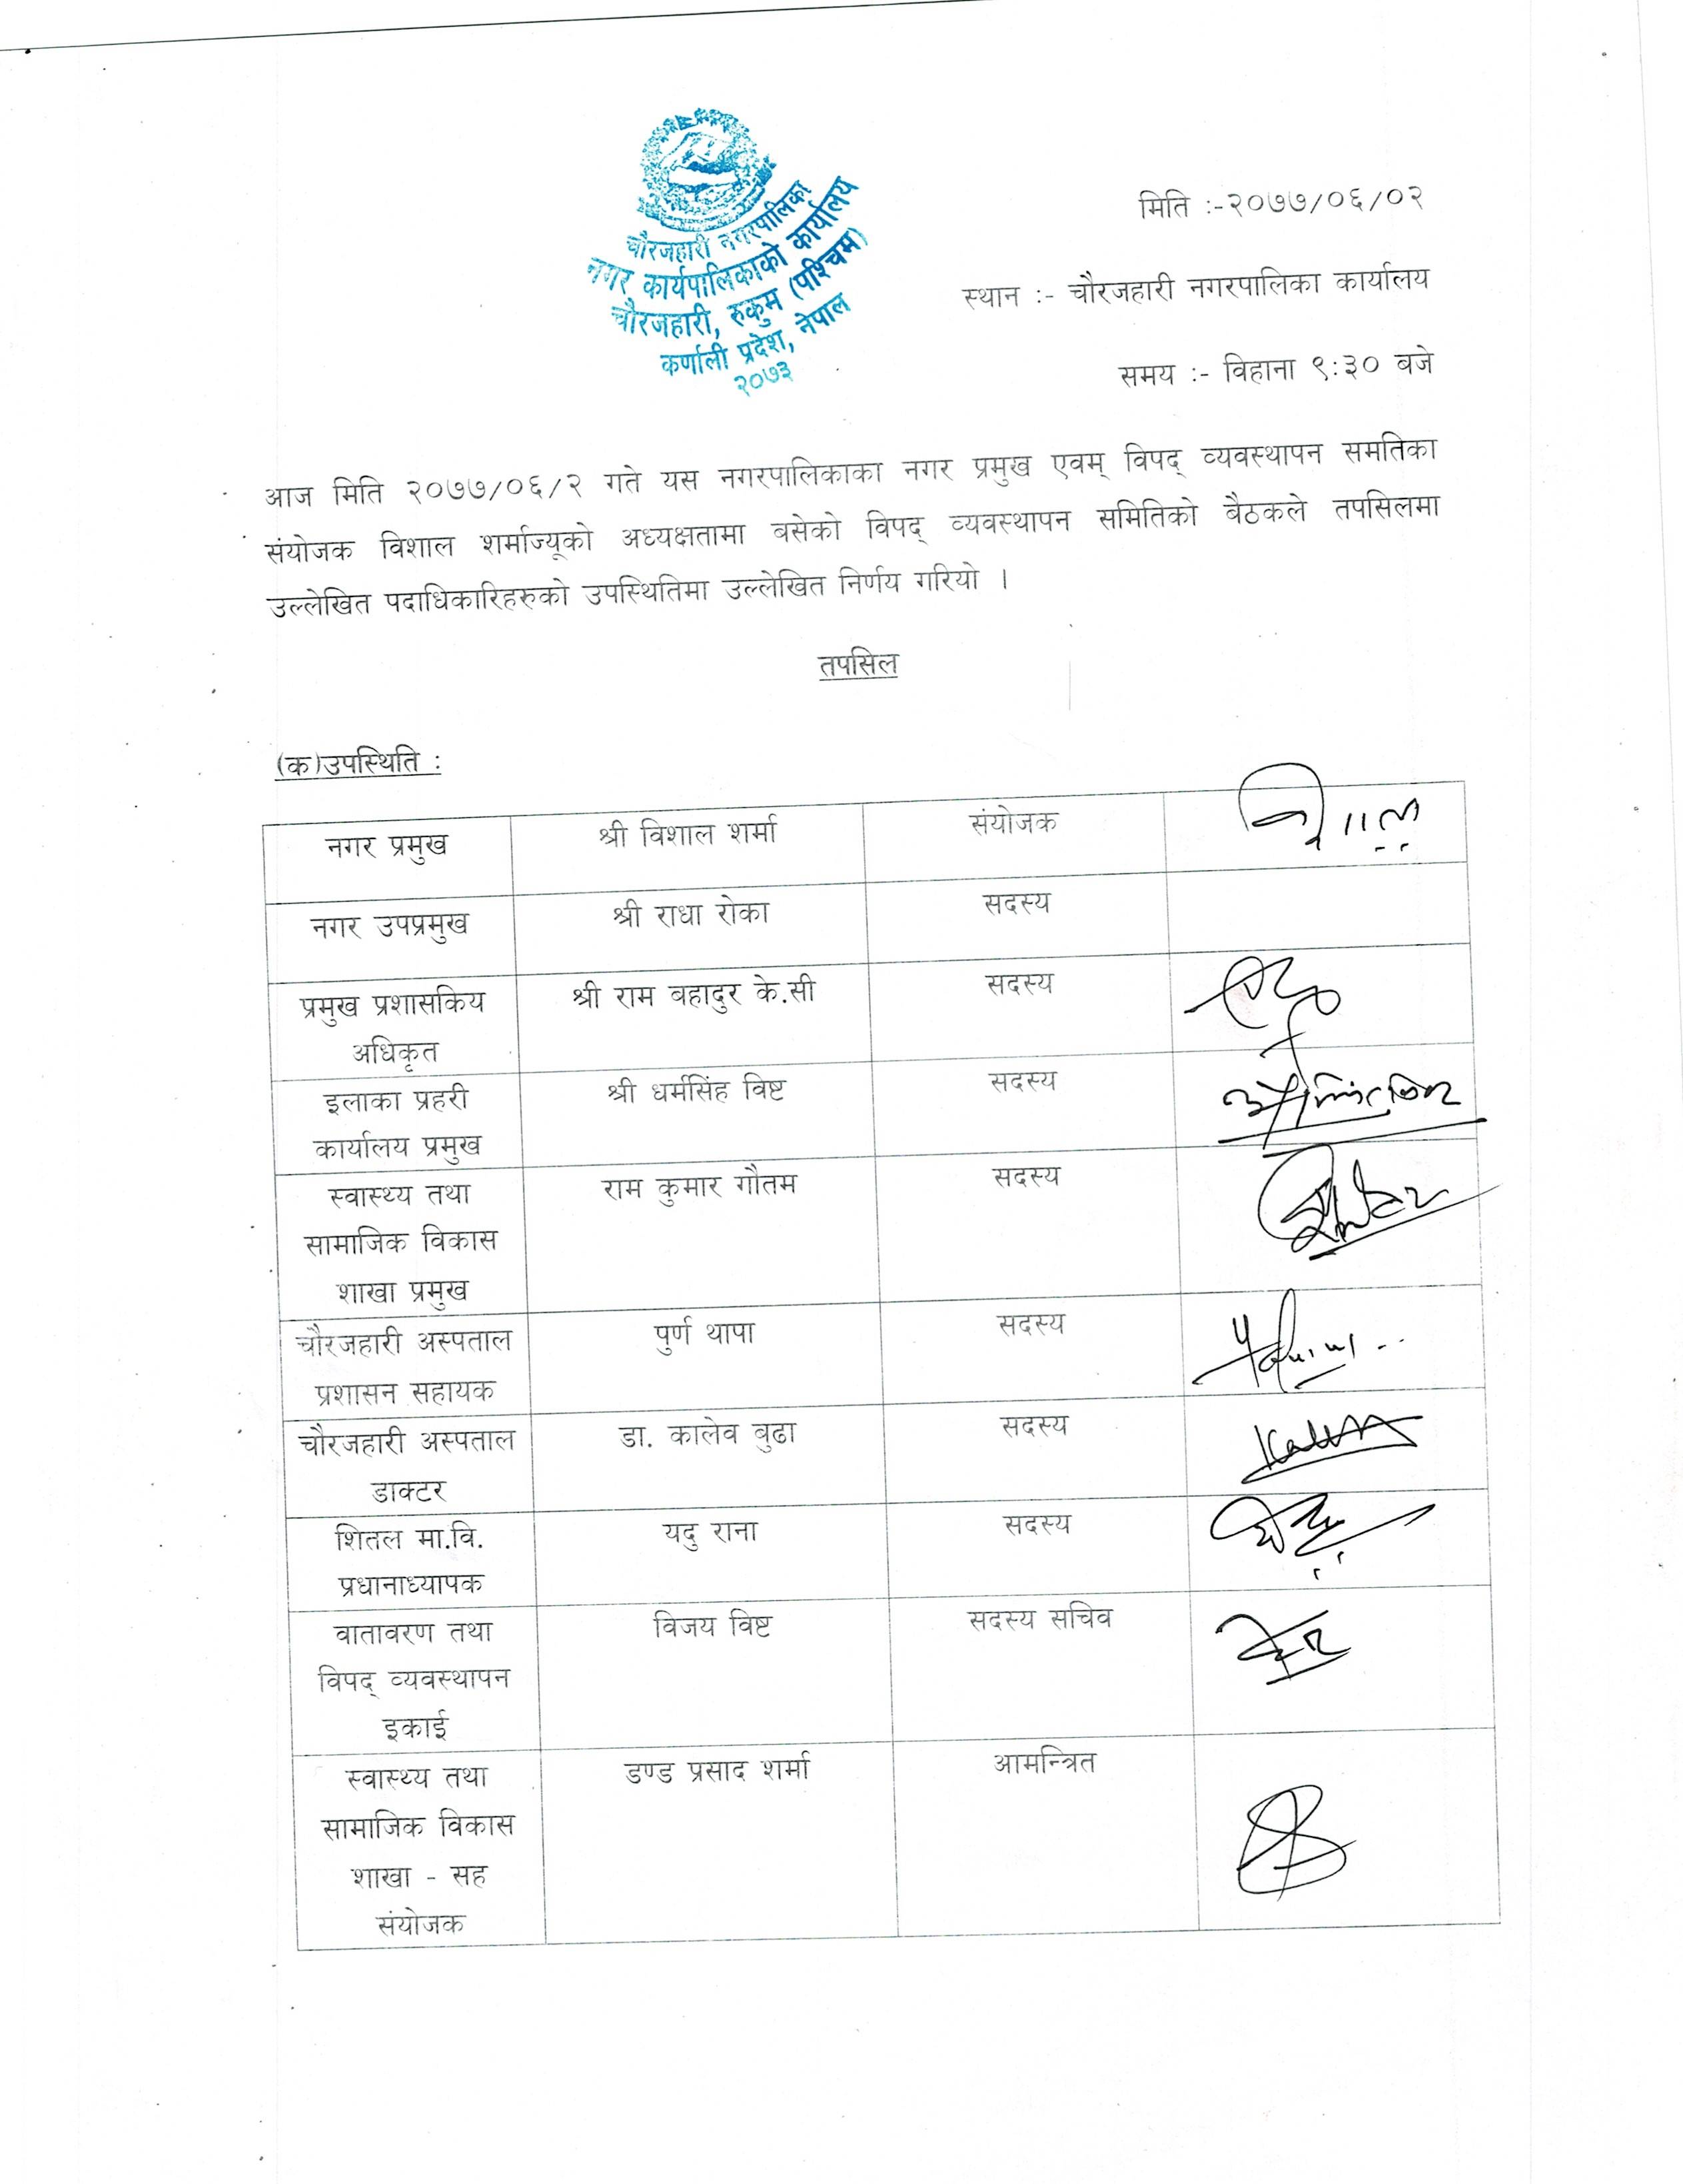 चौरजहारी नगरपालिका
नगर कार्यपालिकाको कार्यालय
चौरजहारी, रुकुम (पश्चिम)
कर्णाली प्रदेश, नेपाल
२०७३
मिति :-२०७७/०६/०२
स्थान :- चौरजहारी नगरपालिका कार्यालय
समय :- विहाना ९:३० बजे
आज मिति २०७७/०६/२ गते यस नगरपालिकाका नगर प्रमुख एवम् विपद् व्यवस्थापन समतिका
संयोजक विशाल शर्माज्यूको अध्यक्षतामा बसेको विपद् व्यवस्थापन समितिको बैठकले तपसिलमा
उल्लेखित पदाधिकारिहरुको उपस्थितिमा उल्लेखित निर्णय गरियो ।
तपसिल
(क)उपस्थिति :
नगर प्रमुख श्री विशाल शर्मा संयोजक
नगर उपप्रमुख श्री राधा रोका सदस्य
प्रमुख प्रशासकिय श्री राम बहादुर के.सी सदस्य
अधिकृत
इलाका प्रहरी श्री धर्मसिंह विष्ट सदस्य
कार्यालय प्रमुख
स्वास्थ्य तथा राम कुमार गौतम सदस्य
सामाजिक विकास
शाखा प्रमुख
चौरजहारी अस्पताल पुर्ण थापा सदस्य
प्रशासन सहायक
चौरजहारी अस्पताल डा. कालेव बुढा सदस्य
डाक्टर
शितल मा.वि. यदु राना सदस्य
प्रधानाध्यापक
वातावरण तथा विजय विष्ट सदस्य सचिव
विपद् व्यवस्थापन
इकाई
स्वास्थ्य तथा डण्ड प्रसाद शर्मा आमन्त्रित
सामाजिक विकास
शाखा - सह
संयोजक